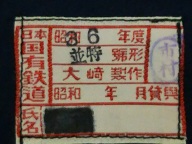 日本国有鉄道
昭和6年度
並特號形
大崎製作
昭和 年 月貸與
氏名